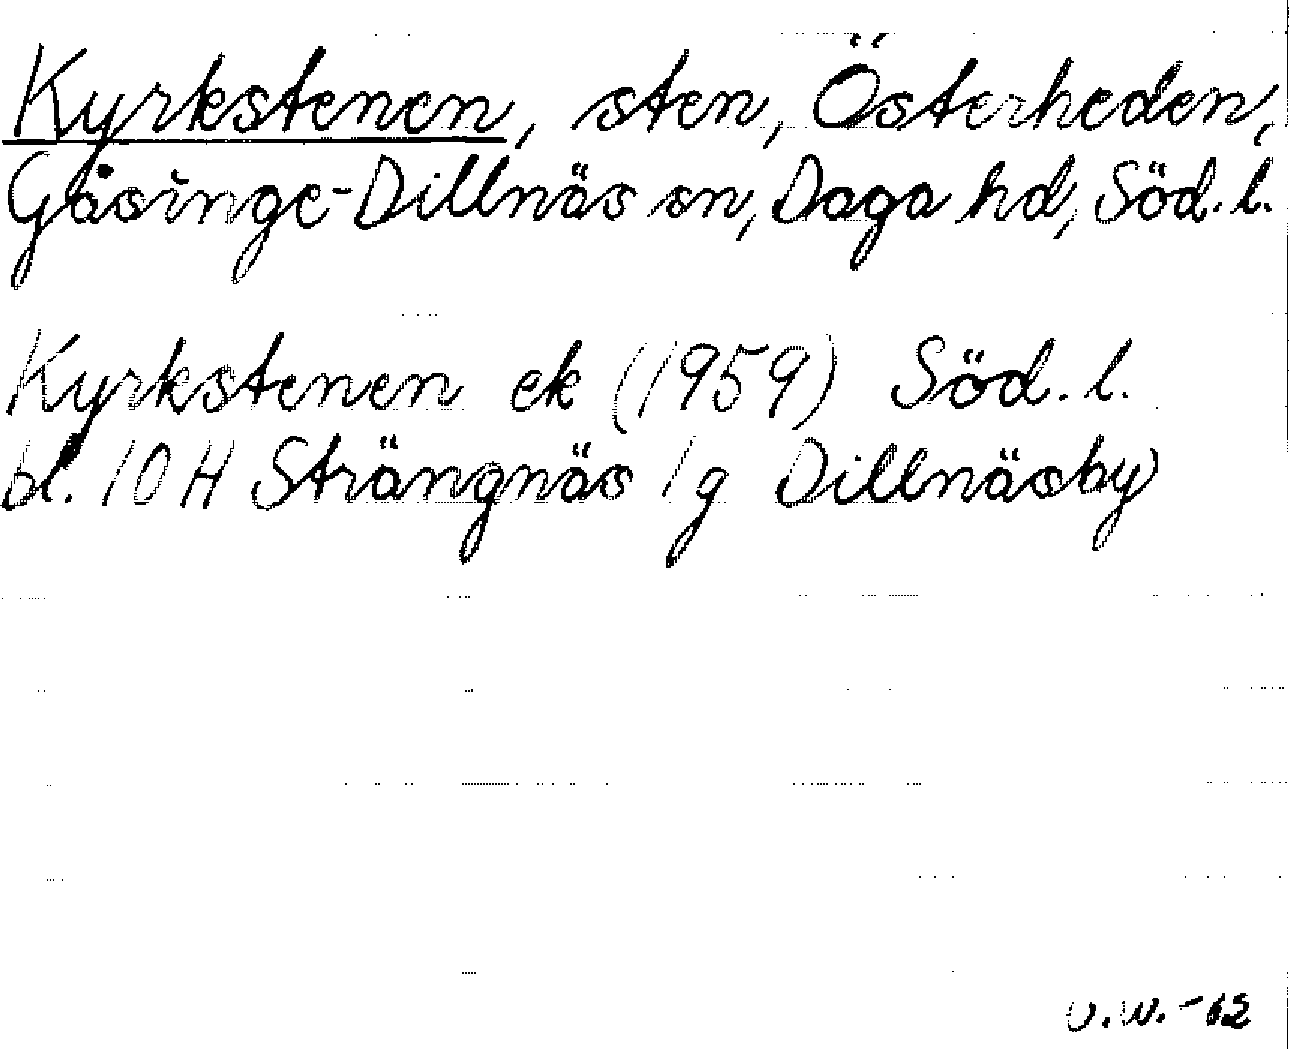 Kyrkstenen, sten, Österheden,
Gåsinge-Dillnäs sn, Daga hd, Söd. l.
Kyrkstenen ek (1959) Söd. l.
bl. 10H Strängnäs 1g Dillnäsby
U.W. -62